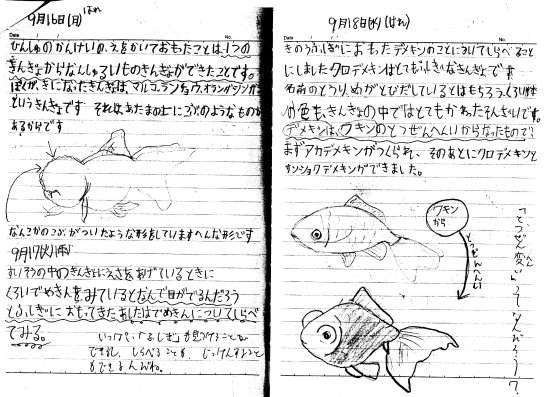 9月16日(月) はれ
ひんしゅのかんけいの、えをかいておもったことは、1つの
きんぎょからなんしゅるいものきんぎょができたことです。
ぼくが、きになったきんぎょは、マルコ、ランチュウ、オランダシシガシラ
というきんぎょです それは、あたまの上にこぶのようなものが
あるからです
なんこかのこぶがついたような形をしていますへんな形です
9月17(火)(雨)
れいぞうの中のきんぎょにえさをあげているときに
くろいでめきんをみているとなんで目がでるんだろう
とふしぎにおもってきたあしたはでめきんについてしらべ
てみる。
いっけん、「ふしぎ」も見つけることも
できれば、しらべることも、じっけんすること
もできるんだね。
9月18日(水)(はれ)
きのうふしぎにおもったデメキンのことについてしらべること
にしましたクロデメキンはとてもふしぎなきんぎょです
名前のとうり、めがとびだしているとはもちろん、くろい体
の色も、きんぎょの中ではとてもかわったそんざいです。
デメキンは、ワキンのとつぜんへんいからなったもので、
まずアカデメキンがつくられ、そのあとにクロデメキンと
サンショクデメキンができました。
ワキン
から
とつぜんへんい
「とつぜん変い」ってなんだろう?